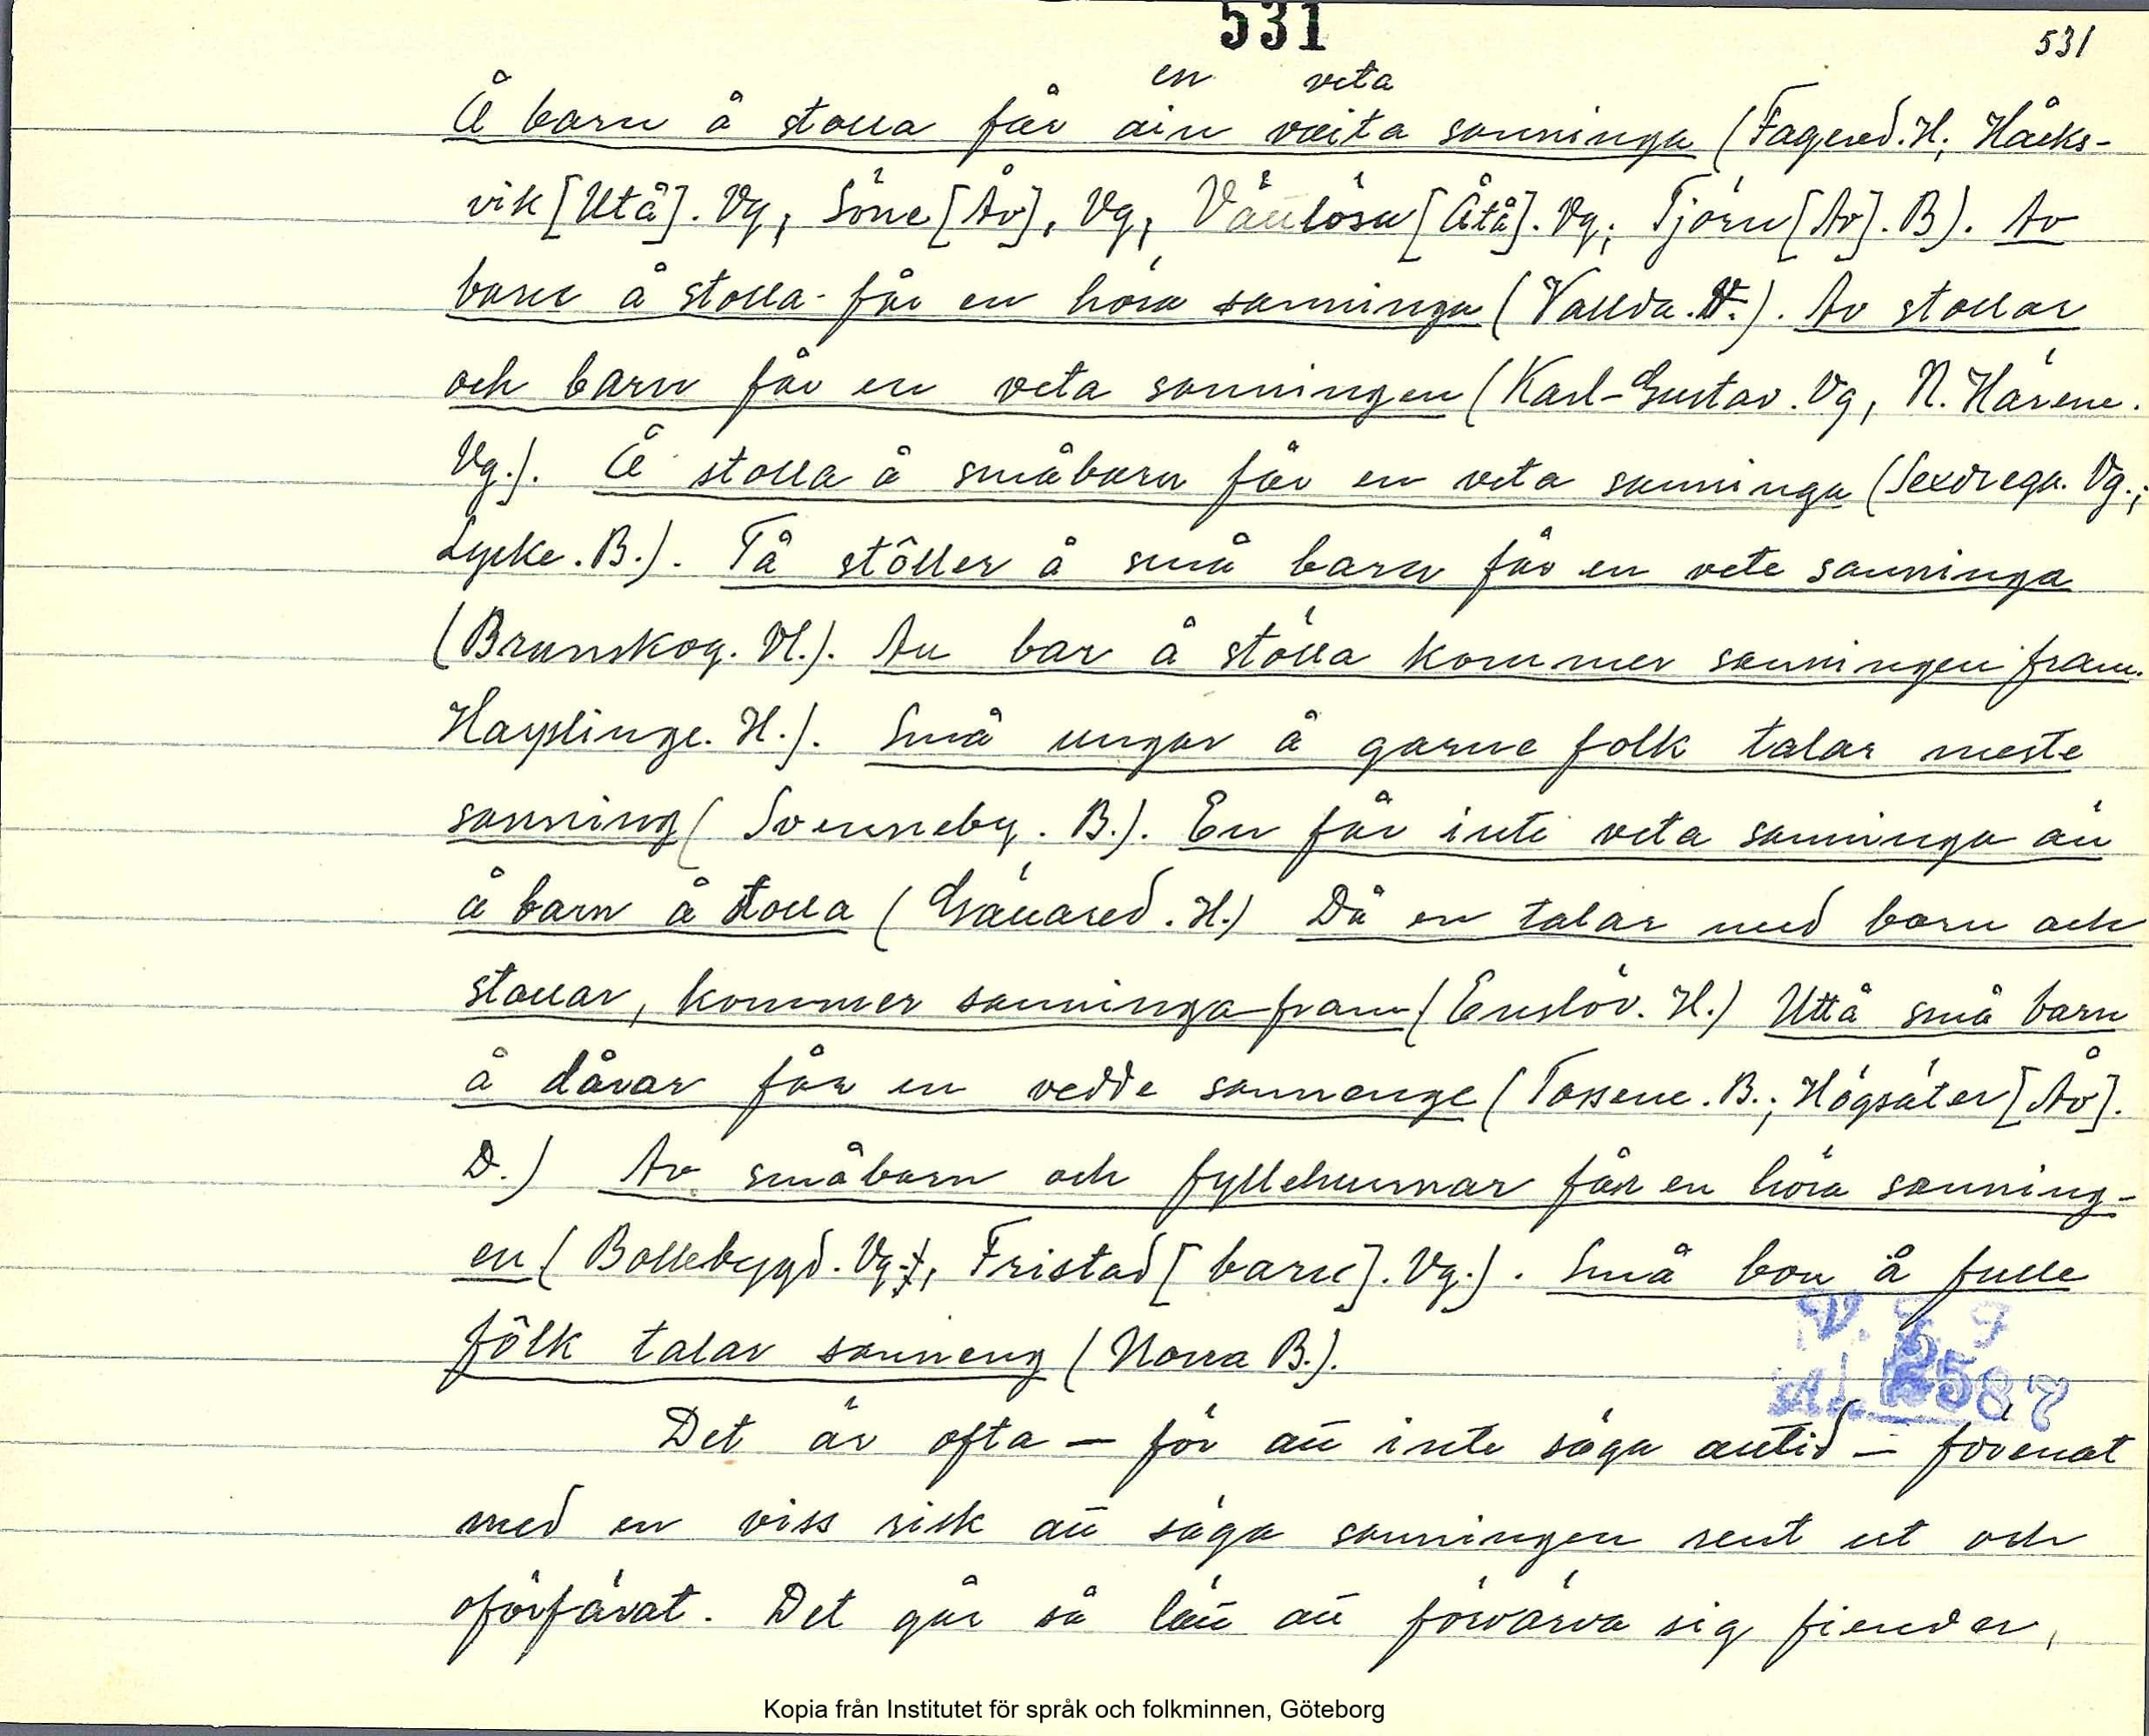 531
531
en veta
Å barn å stolla får ain väita sanninga (Fagered. H; Håcks-
vik [Utå]. Vg; Söne [Åv], Vg, Vänlösa [Åtå]. Vg; Tjörn [Av]. B). Av
barn å stolla får en höra sanninga (Vallda. H.). Av stollar
och barn får en veta sanningen (Karl-Gustav. Vg, N. Härene.
Vg.). Å stolla å småbarn får en veta sanninga (Sexdrega. Vg.;
Lycke. B.). Tå stôller å små barn får en vete sanninga
(Brunskog. Vl.). Au bar å stölla kommer sanningen fram.
Harplinge. H.). Små ungar å garne folk talar meste
sanning (Svenneby. B.). En får inte veta sanninga än
å barn å stolla (Gällared. H.) Då en talar med barn och
stollar, kommer sanninga fram (Enslöv. H.) Uttå små barn
å dårar får en vedde sannenge (Tossene. B.; Högsäter [Åv].
D.) Av småbarn och fyllehunnar får en höra sanning-
en (Bollebygd. Vg., Fristad [barn]. Vg.). Små bon å fulle
fôlk talar sanneng (Norra B.).
V. F. F
2587
Det är ofta – för att inte säga alltid – förenat
med en viss risk att säga sanningen rent ut och
oförfärat. Det går så lätt att förvärva sig fiender,
Kopia från Institutet för språk och folkminnen, Göteborg